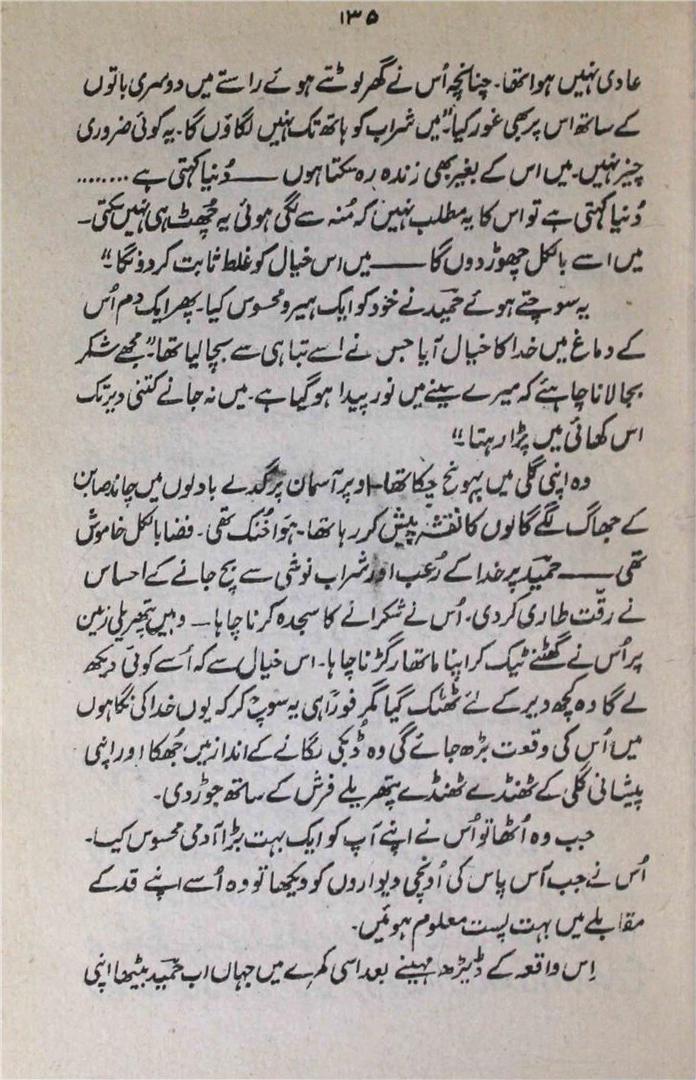 ۱۳۵
عادی نہیں ہوا تھا۔ چنانچہ اُس نے گھر لوٹتے ہوئے راستے میں دوسری باتوں
کے ساتھ اس پر بھی غور کیا۔ "میں شراب کو ہاتھ تک نہیں لگاؤں گا۔ یہ کوئی ضروری
چیز نہیں۔ میں اس کے بغیر بھی زندہ رہ سکتا ہوں —— دُنیا کہتی ہے ........
دُنیا کہتی ہے تو اس کا یہ مطلب نہیں کہ مُنہ سے لگی ہوئی یہ چُھٹ ہی نہیں سکتی۔
میں اسے بالکل چھوڑ دوں گا —— میں اس خیال کو غلط ثابت کر دونگا۔"
یہ سوچتے ہوئے حمید نے خود کو ایک ہیرو محسوس کیا۔ پھر ایک دم اُس
کے دماغ میں خدا کا خیال آیا جس نے اسے تباہی سے بچا لیا تھا۔ "مجھے شکر
بجا لانا چاہئے کہ میرے سینے میں نور پیدا ہو گیا ہے۔ میں نہ جانے کتنی دیر تک
اس کھائی میں پڑا رہتا۔"
وہ اپنی گلی میں پہونچ چکا تھا۔ اوپر آسمان پر گدلے بادلوں میں چاند صابن
کے جھاگ لگے گالوں کا نقشہ پیش کر رہا تھا۔ ہَوا خُنک تھی۔ فضا بالکل خاموش
تھی —— حمید پر خدا کے رُعب اور شراب نوشی سے بچ جانے کے احساس
نے رقّت طاری کر دی۔ اُس نے شکرانے کا سجدہ کرنا چاہا — وہیں پتھریلی زمین
پر اُس نے گھٹنے ٹیک کر اپنا ماتھا رگڑنا چاہا۔ اس خیال سے کہ اُسے کوئی دیکھ
لے گا وہ کچھ دیر کے لئے ٹھٹک گیا مگر فوراً ہی یہ سوچ کر کہ یوں خدا کی نگاہوں
میں اُس کی وقعت بڑھ جائے گی وہ ڈُبکی لگانے کے انداز میں جُھکا اور اپنی
پیشانی گلی کے ٹھنڈے ٹھنڈے پتھریلے فرش کے ساتھ جوڑ دی۔
جب وہ اُٹھا تو اُس نے اپنے آپ کو ایک بہت بڑا آدمی محسوس کیا۔
اُس نے جب آس پاس کی اُونچی دیواروں کو دیکھا تو وہ اُسے اپنے قد کے
مقابلے میں بہت پست معلوم ہوئیں۔
اِس واقعہ کے ڈیڑھ مہینے بعد اسی کمرے میں جہاں اب حمید بیٹھا اپنی